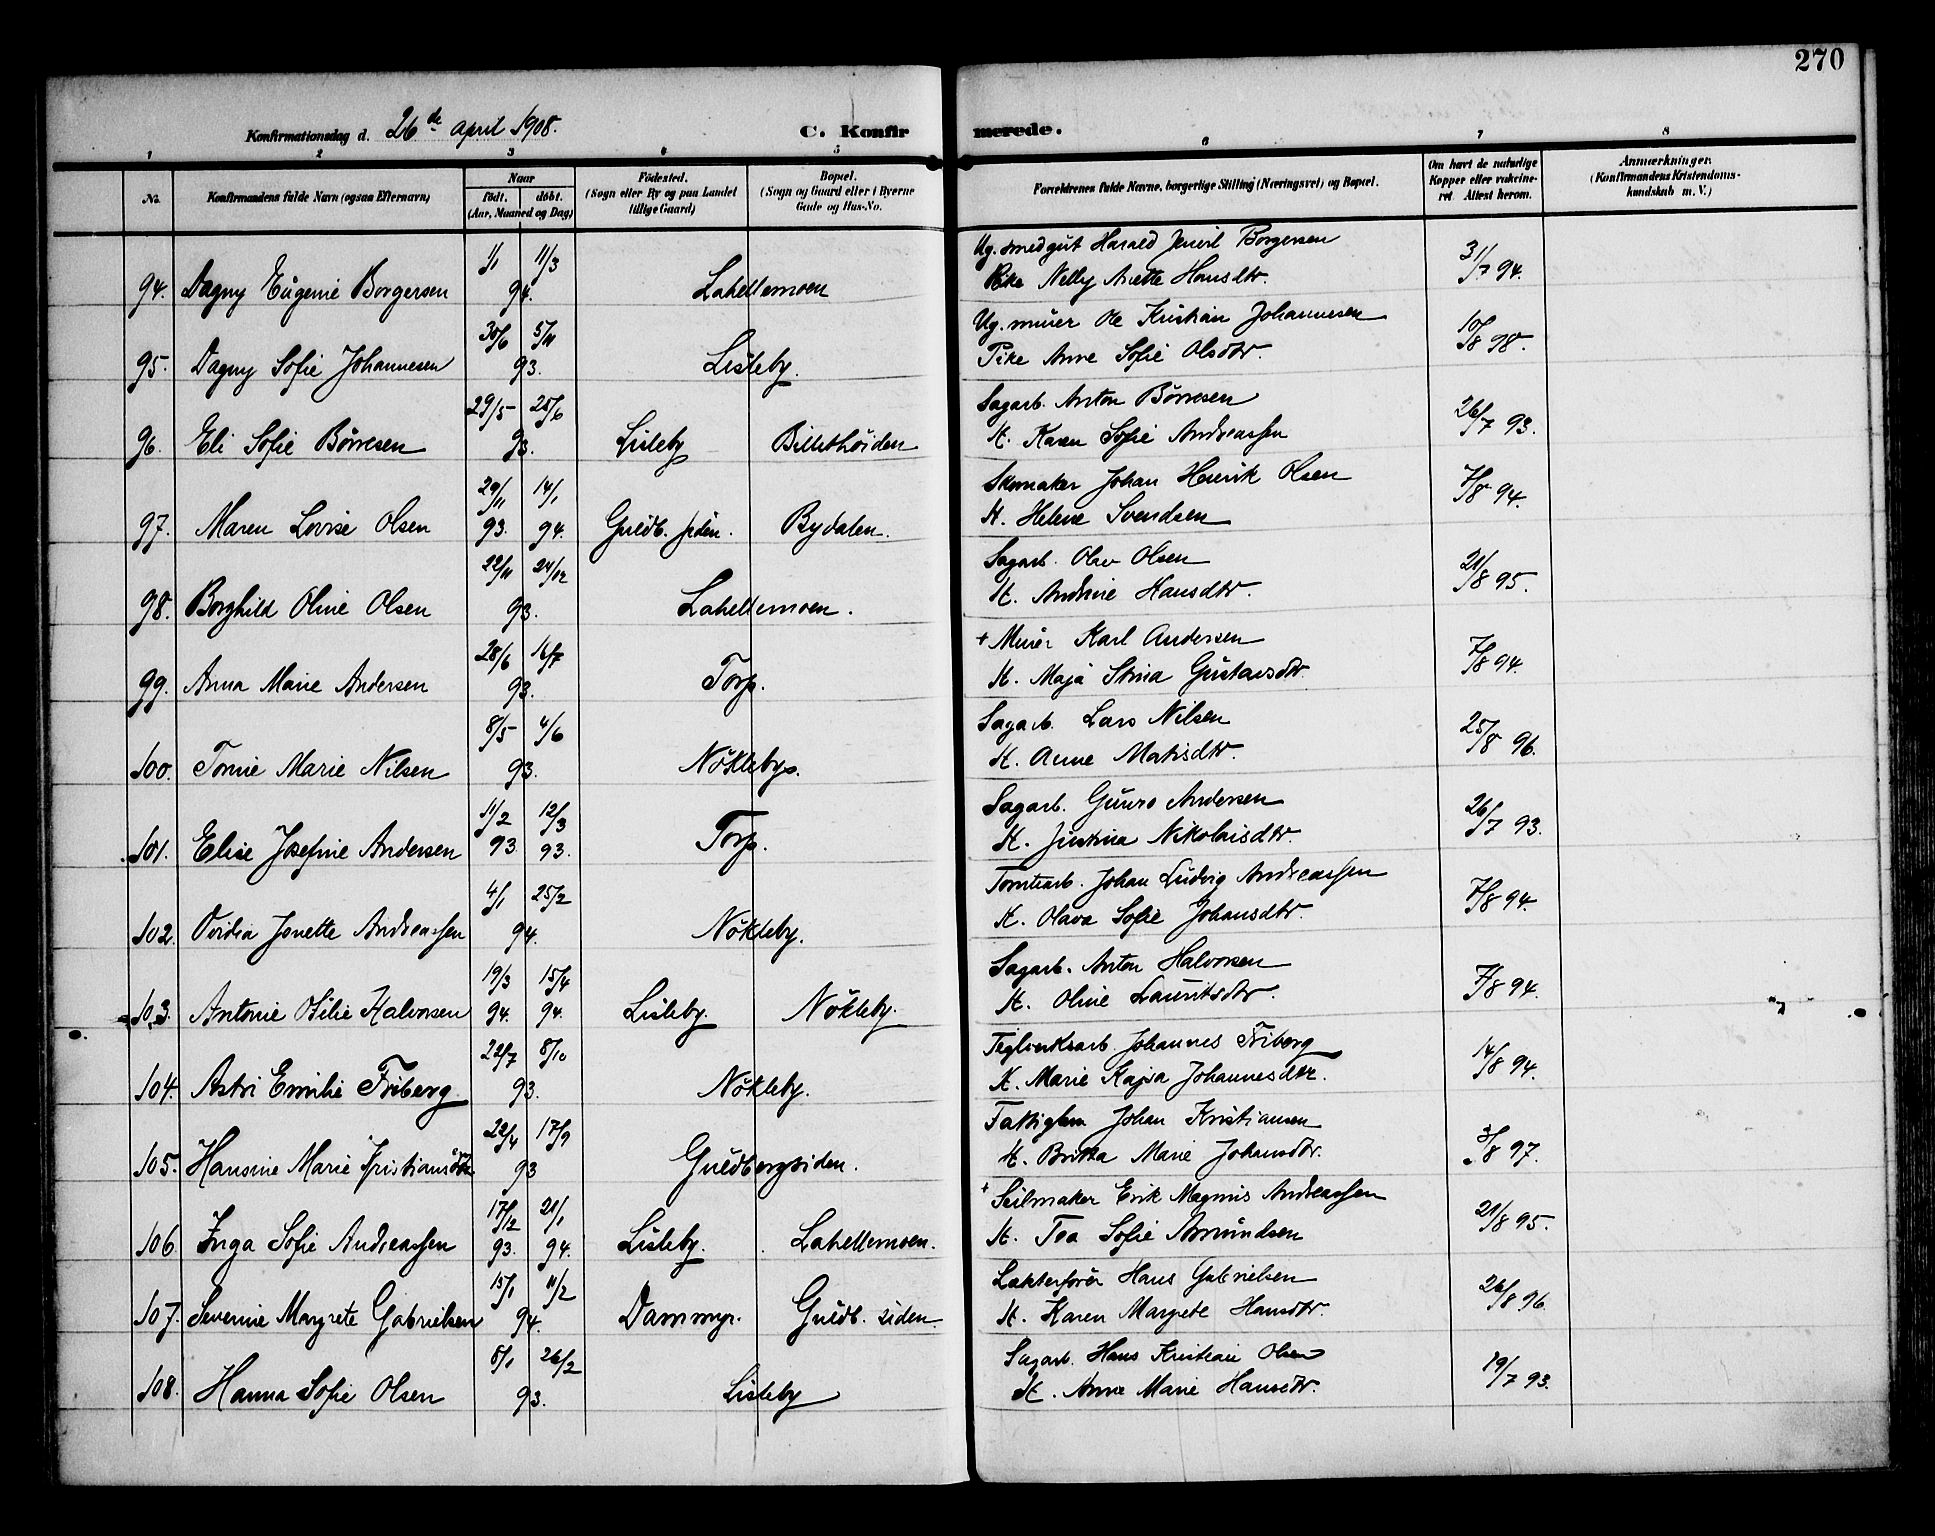 270
Konfirmationsdag d. 26de april 1908.
C. Konfirmerede.
1 2 3 4 5 6 7 8
No.
Konfirmandens fulde Navn (ogsaa Efternavn)
Naar
födt. döbt.
(Aar, Maaned og Dag)
Födested.
(Sogn eller By og paa Landet
tillige Gaard)
Bopæl.
(Sogn og Gaard eller i Byerne
Gade og Hus-No.
Forældrenes fulde Navne, borgerlige Stilling (Næringsvei) og Bopæl.
Om havt de naturlige
Kopper eller vakcine-
ret Attest herom.
Anmærkninger.
(Konfirmandens Kristendoms-
kundskab m. V.)
1/1 11/3 Ug. smedgut Harald Borgersen 31/7 94.
94. Dagny Eugenie Borgersen 94. Lahellemoen Pike Nelly Hansdtr.
30/6 5/11 Ug. murer Ole Kristian Johannesen 10/8 98.
95. Dagny Sofie Johannesen 93. Lisleby. Pike Anne Sofie Olsdtr.
29/5 25/6 Sagarb. Anton Börresen 26/7 93.
96. Eli Sofie Börresen 93. Lisleby H. Karen Sofie Andreassen
29/11 14/1 Skomaker Johan Henrik Olsen 7/8 94.
97. Maren Lovise Olsen 93. 94. Guldb. siden. Bydalen. H. Helene Svendsen
22/11 24/12 Sagarb. Olav Olsen 21/8 95.
98. Borghild Oline Olsen 93. Lahellemoen. H. Andrine Hansdtr.
28/6 16/7 + Murer Karl Andersen 7/8 94.
99. Anna Marie Andersen 93. Torp. H. Maja Stina Gustavsdtr.
8/5 4/6 Sagarb. Lars Nilsen 25/8 96.
100. Tomie Marie Nilsen 93. Nökleby. H. Anne Matisdtr.
11/2 12/3 Sagarb. Andersen 26/7 93.
101. Elise Josefine Andersen 93 93. Torp. H. Justina Nikolaisdtr.
4/1 25/2 Tomtearb. Johan Ludvig Andreassen 7/8 94.
102. Ovidia Jonette Andreassen 94. Nökleby. H. Olava Sofie Johansdtr.
19/3 15/4 Sagarb. Anton Halvorsen 7/8 94.
103. Antonie Otilie Halvorsen 94. 94. Lisleby. Nökleby. H. Oline Lauritsdtr.
22/7 8/10 Teglverksarb. Johannes Friberg 14/8 94.
104. Astri Emilie Friberg 93. Nökleby. H. Marie Kajsa Johannesdtr.
22/4 17/9 Fattiglem Johan Kristiansen 3/8 97.
105. Hansine Marie Kristiansdtr 93 Guldbergsiden. H. Britta Marie Johansdtr.
17/12 21/1 + Seilmaker Erik Magnus Andreassen 21/8 95.
106 Inga Sofie Andreassen 93. 94. Lisleby. Lahellemoen. H. Tea Sofie Amundsen
15/1 11/2 Lekterförer Hans Gabrielsen 26/8 96.
107. Severine Margrete Gabrielsen 94. Dammyr. Guldb. siden. H. Karen Margrete Hansdtr.
8/1 26/2 Sagarb. Hans Kristian Olsen 19/7 93.
108. Hanna Sofie Olsen 93. Lisleby H. Anne Marie Hansdtr.